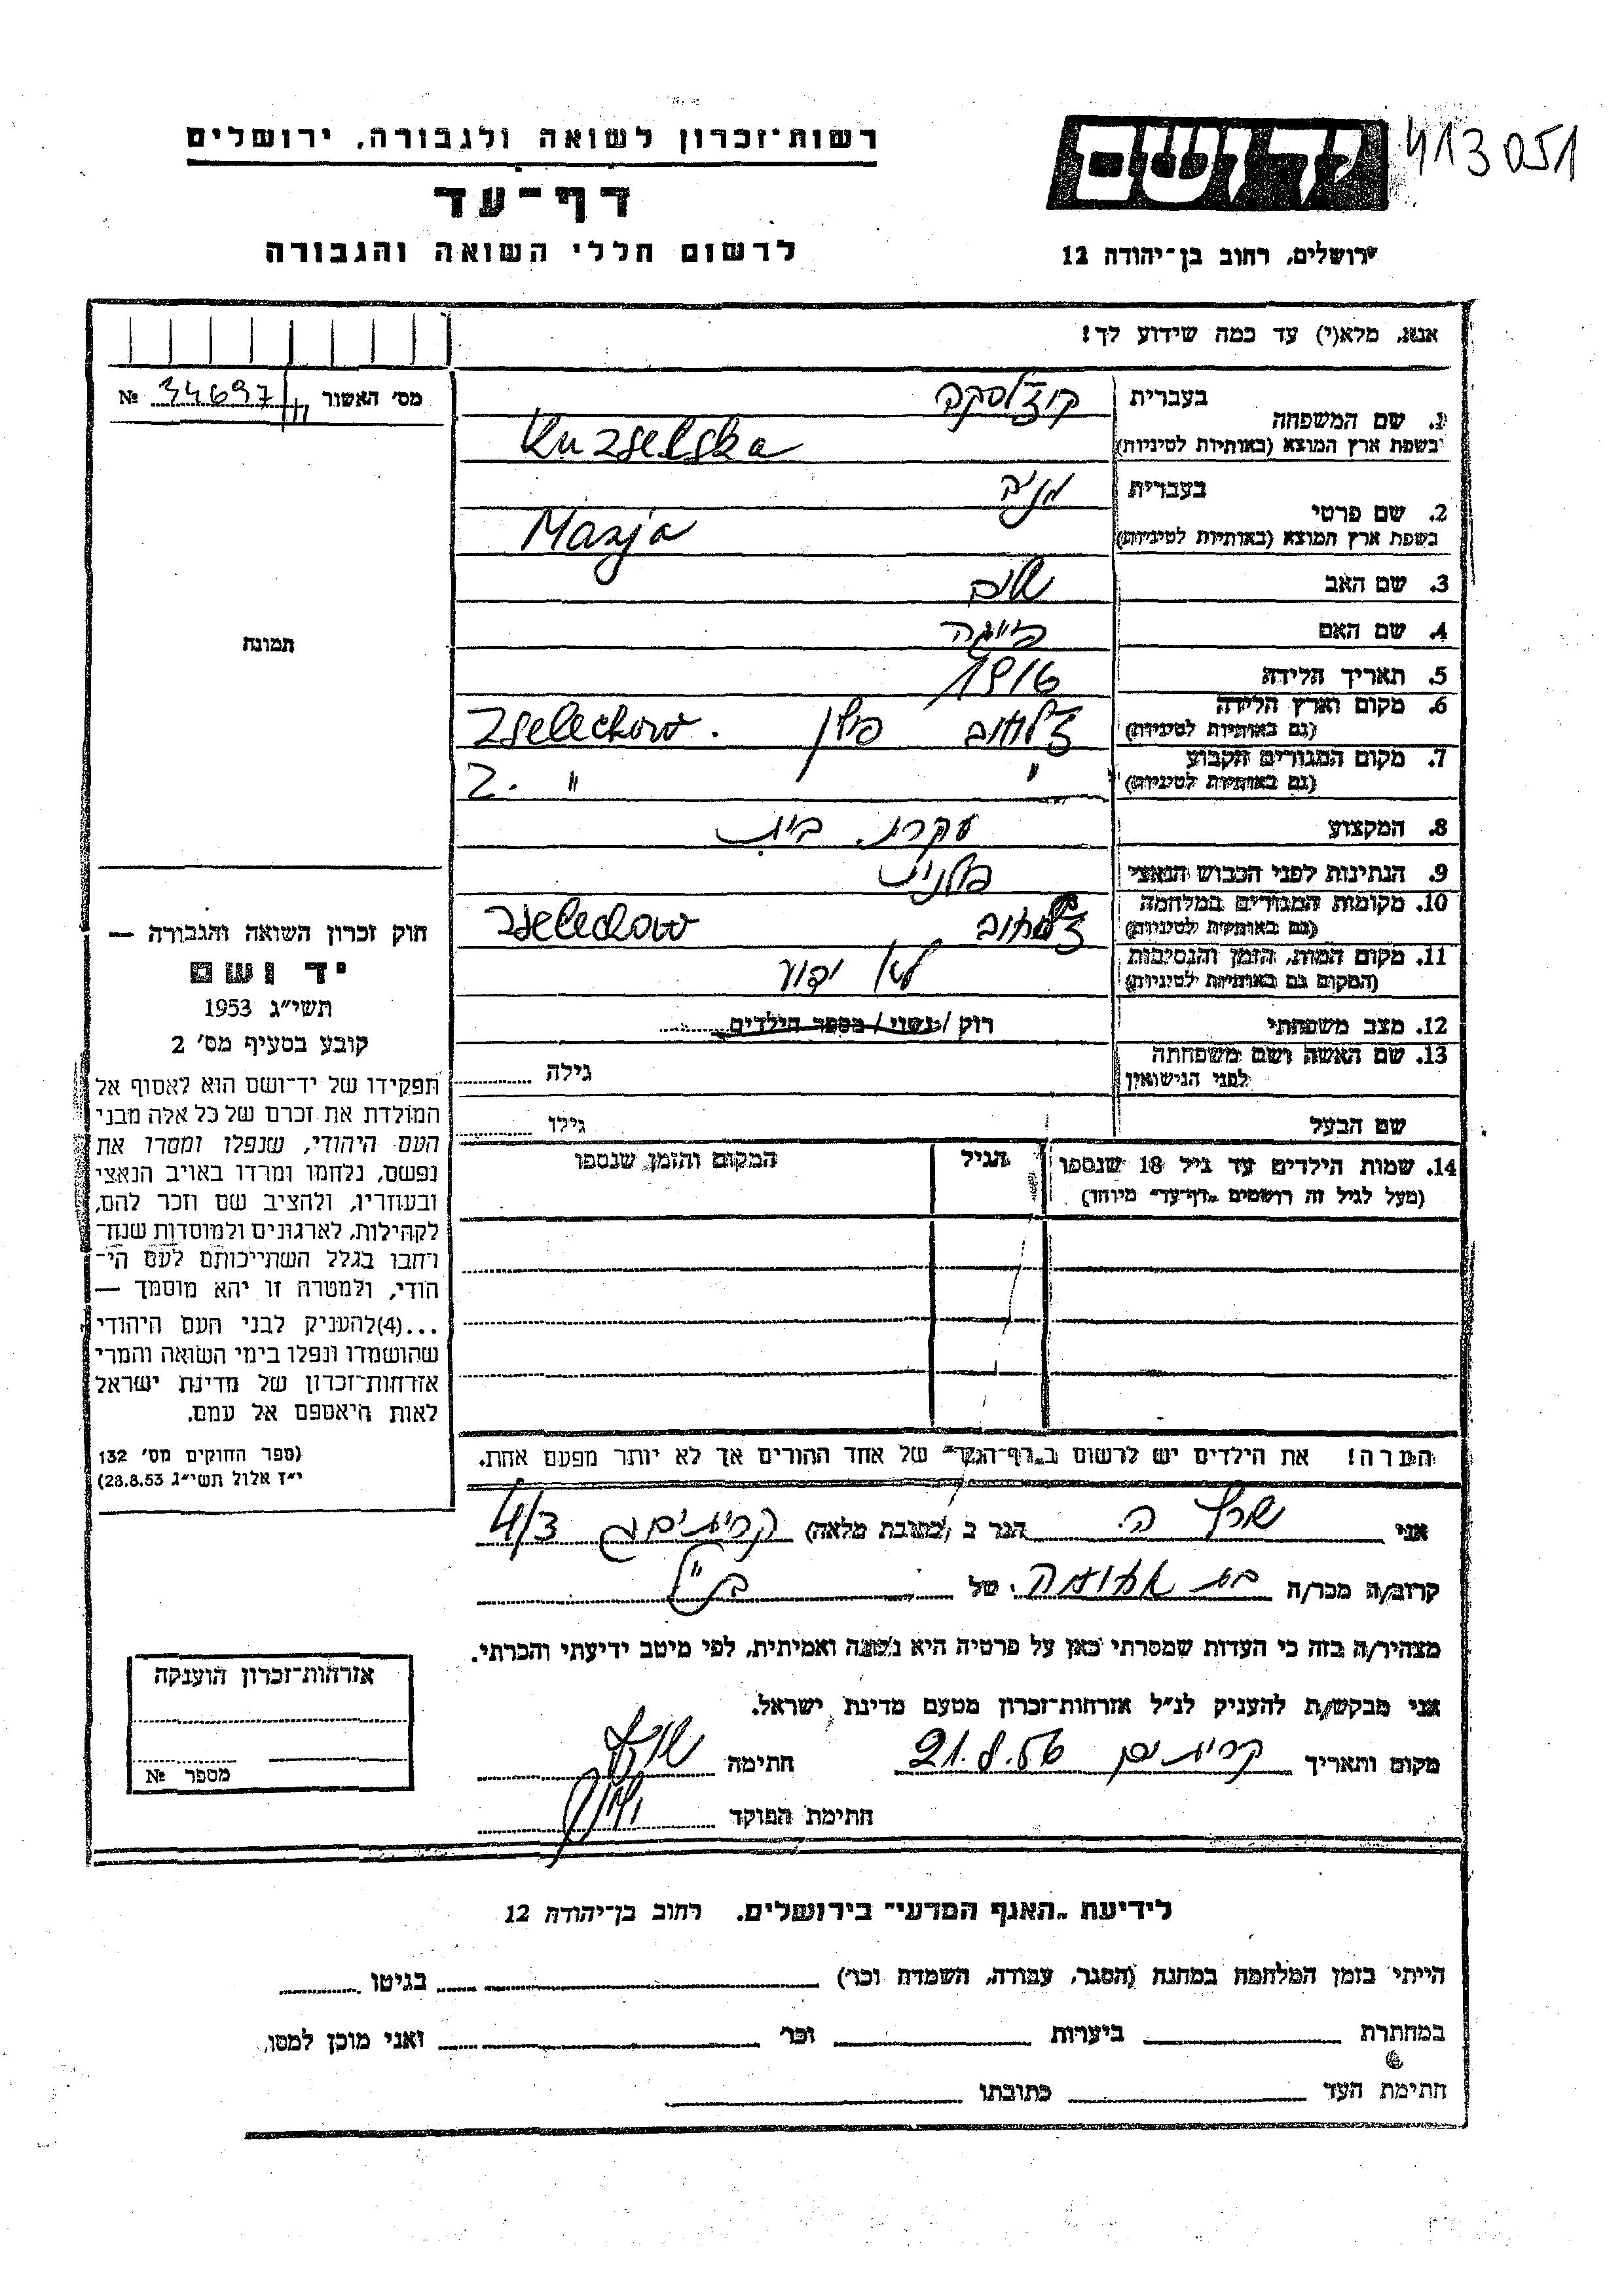 413051
רשות־זכרון לשואה ולגבורה, ירושלים
דף־עד
לרשום חללי השואה והגבורה
יד ושם
ירושלים, רחוב בן־יהודה 12
אנא, מלא(י) עד כמה שידוע לך!
מס' האשור 34697 №
תמונה
1. שם המשפחה
בעברית קוזלסקה
בשפת ארץ המוצא (באותיות לטיניות) Kuzselska
2. שם פרטי
בעברית מניה
בשפת ארץ המוצא (באותיות לטיניות) Manja
3. שם האב
4. שם האם פייגה
5. תאריך הלידה 1916
6. מקום וארץ הלידה
(גם באותיות לטיניות) פולין . Zselechow
7. מקום המגורים הקבוע
(גם באותיות לטיניות) " " Z.
8. המקצוע עקרת בית
9. הנתינות לפני הכבוש הנאצי פולנית
10. מקומות המגורים במלחמה
(גם באותיות לטיניות) Zselechow
11. מקום המות, הזמן והנסיבות
(המקום גם באותיות לטיניות) לא ידוע
12. מצב משפחתי רוק / נשוי / מספר הילדים
13. שם האשה ושם משפחתה
לפני הנישואין גילה
שם הבעל גילו
14. שמות הילדים עד גיל 18 שנספו
(מעל לגיל זה רושמים "דף־עד" מיוחד)
הגיל
המקום והזמן שנספו
הערה! את הילדים יש לרשום ב"דף־העד" של אחד ההורים אך לא יותר מפעם אחת.
חוק זכרון השואה והגבורה —
יד ושם
תשי"ג 1953
קובע בסעיף מס' 2
תפקידו של יד־ושם הוא לאסוף אל
המולדת את זכרם של כל אלה מבני
העם היהודי, שנפלו ומסרו את
נפשם, נלחמו ומרדו באויב הנאצי
ובעוזריו, ולהציב שם וזכר להם,
לקהילות, לארגונים ולמוסדות שנח־
רחבו בגלל השתייכותם לעם הי־
הודי, ולמטרה זו יהא מוסמך —
...(4)להעניק לבני העם היהודי
שהושמדו ונפלו בימי השואה והמרי
אזרחות־זכרון של מדינת ישראל
לאות היאספם אל עמם.
(ספר החוקים מס' 132
י"ז אלול תשי"ג 28.8.53)
אני ה. הגר ב (כתובת מלאה) 4/3
קרוב/ה מכר/ה בת של הנ"ל
מצהיר/ה בזה כי העדות שמסרתי כאן על פרטיה היא נכונה ואמיתית, לפי מיטב ידיעתי והכרתי.
אני מבקש/ת להעניק לנ"ל אזרחות־זכרון מטעם מדינת ישראל.
מקום ותאריך 21.8.56 חתימה
חתימת הפוקד
אזרחות־זכרון הוענקה
מספר №
לידיעת "האגף המדעי" בירושלים. רחוב בן־יהודה 12
הייתי בזמן המלחמה במחנה (הסגר, עבודה, השמדה וכו') בגיטו
במחתרת ביערות וכו' ואני מוכן למסו,
חתימת העד כתובתו